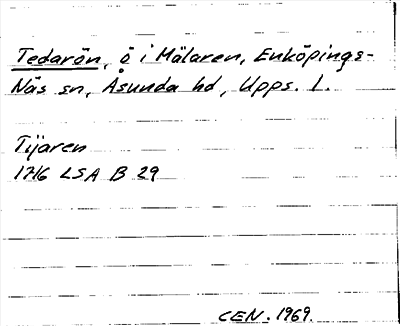 Tedarön, ö i Mälaren, Enköpings-
Näs sn, Åsunda hd, Upps. l.
Tijaren
1716 LSA B 29
CEN. 1969.